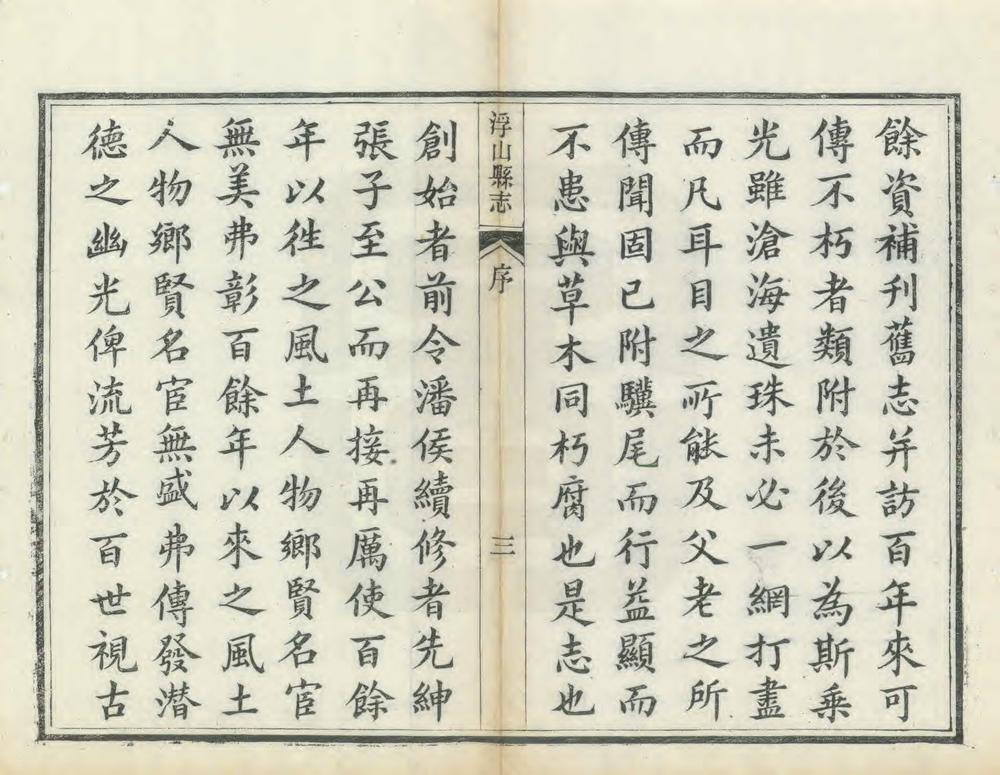 餘資補刊舊志并訪百年來可
傳不朽者類附於後以為斯乘
光雖滄海遺珠未必一網打盡
而凡耳目之所能及父老之所
傳聞固已附驥尾而行益顯而
不患與草木同朽腐也是志也
浮山縣志 序 三
創始者前令潘侯續修者先紳
張子至公而再接再厲使百餘
年以徃之風土人物鄉賢名宦
無美弗彰百餘年以來之風土
人物鄉賢名宦無盛弗傳發潛
德之幽光俾流芳於百世視古